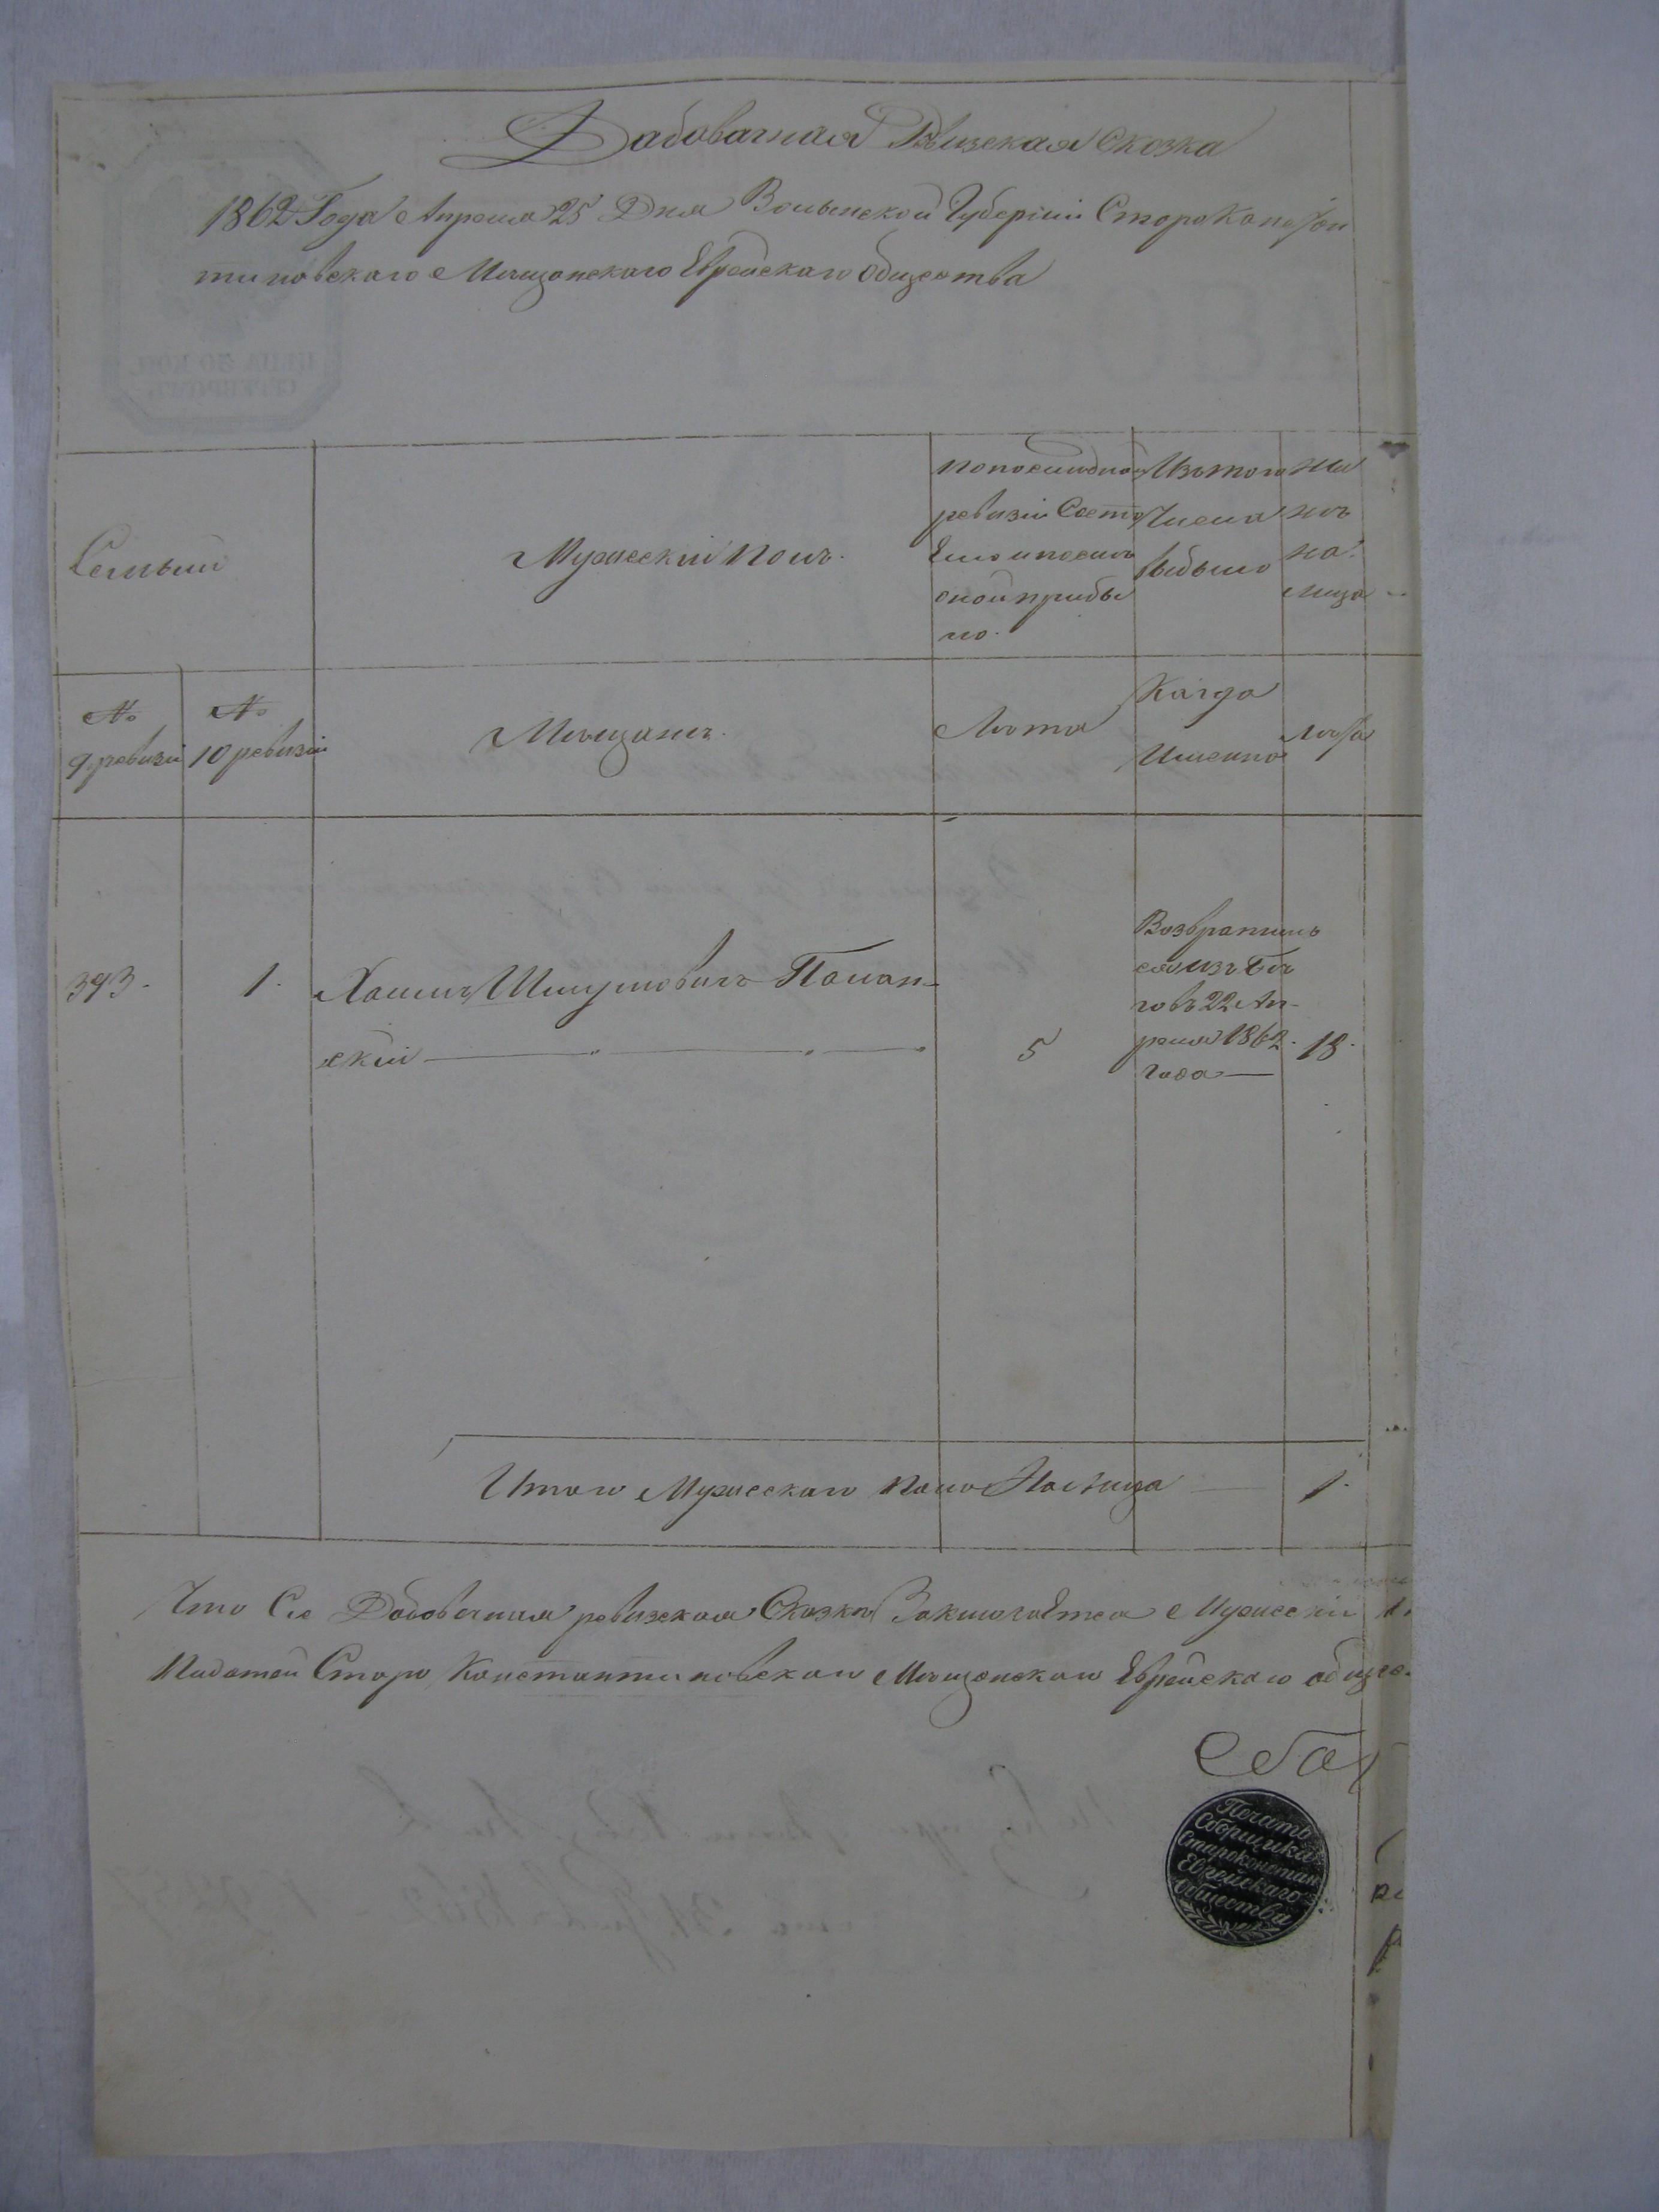 Дабовачная Ревизская Сказка
1862 Года Апреля 25 Дня Волынской Губерніи Старо Констан
тиновскаго Мещанскаго Еврейскаго Общества
ЦѢНА 20 КОП.
СЕРЕБРОМЪ
Семьи
Мужескій Полъ.
По последней
ревизіи Состо
Яло и после
оной прибы
ло.
Изъ того
Числа
выбыло
Ны
нѣ
на
лицо
№
9 ревизіи
№
10 ревизіи
Мещанъ.
Лета
Когда
Именно
Лета
393.
1.
Хаимъ Шмулiовичъ Полан-
скій
5
Возвратилъ
ся изъ Бѣ
говъ 22 Ап-
реля 1862
Года
18.
Итого Мужескаго Пола На Лицо 1.
Что Сіе Добовачная ревизская Сказка Заключаетса Мужескій
Податей Старо Константиновскаго Мещанскаго Еврейскаго обще-
Сба
Печать
Сборщика
Староконстан
Еврейскаго
Общества